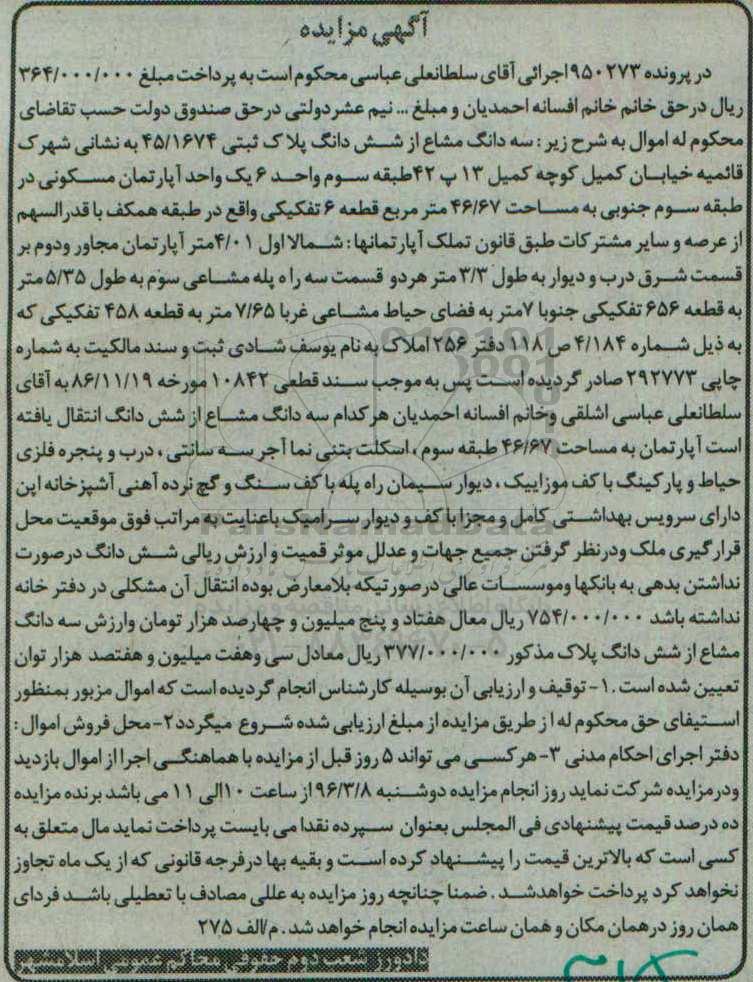 آگهی مزایده
در پرونده ۹۵۰۲۷۳ اجرائی آقای سلطانعلی عباسی محکوم است به پرداخت مبلغ ۳۶۴/۰۰۰/۰۰۰
ریال در حق خانم خانم افسانه احمدیان و مبلغ ... نیم عشر دولتی در حق صندوق دولت حسب تقاضای
محکوم له اموال به شرح زیر : سه دانگ مشاع از شش دانگ پلاک ثبتی ۴۵/۱۶۷۴ به نشانی شهرک
قائمیه خیابان کمیل کوچه کمیل ۱۳ پ ۴۲ طبقه سوم واحد ۶ یک واحد آپارتمان مسکونی در
طبقه سوم جنوبی به مساحت ۴۶/۶۷ متر مربع قطعه ۶ تفکیکی واقع در طبقه همکف با قدرالسهم
از عرصه و سایر مشترکات طبق قانون تملک آپارتمانها : شمالا اول ۴/۰۱ متر آپارتمان مجاور ودوم بر
قسمت شرق درب و دیوار به طول ۳/۳ متر هر دو قسمت سه راه پله مشاعی سوم به طول ۵/۳۵ متر
به قطعه ۶۵۶ تفکیکی جنوبا ۷متر به فضای حیاط مشاعی غربا ۷/۶۵ متر به قطعه ۴۵۸ تفکیکی که
به ذیل شماره ۴/۱۸۴ ص ۱۱۸ دفتر ۲۵۶ املاک به نام یوسف شادی ثبت و سند مالکیت به شماره
چاپی ۲۹۲۷۷۳ صادر گردیده است پس به موجب سند قطعی ۱۰۸۴۲ مورخه ۸۶/۱۱/۱۹ به آقای
سلطانعلی عباسی اشلقی وخانم افسانه احمدیان هر کدام سه دانگ مشاع از شش دانگ انتقال یافته
است آپارتمان به مساحت ۴۶/۶۷ طبقه سوم ، اسکلت بتنی نما آجر سه سانتی ، درب و پنجره فلزی
حیاط و پارکینگ با کف موزاییک ، دیوار سیمان راه پله با کف سنگ و گچ نرده آهنی آشپزخانه اپن
دارای سرویس بهداشتی کامل و مجزا با کف و دیوار سرامیک باعنایت به مراتب فوق موقعیت محل
قرار گیری ملک ودر نظر گرفتن جمیع جهات و عدلل موثر قمیت و ارزش ریالی شش دانگ درصورت
نداشتن بدهی به بانکها وموسسات عالی درصورتیکه بلامعارض بوده انتقال آن مشکلی در دفتر خانه
نداشته باشد ۷۵۴/۰۰۰/۰۰۰ ریال معال هفتاد و پنج میلیون و چهارصد هزار تومان وارزش سه دانگ
مشاع از شش دانگ پلاک مذکور ۳۷۷/۰۰۰/۰۰۰ ریال معادل سی وهفت میلیون و هفتصد هزار توان
تعیین شده است .۱- توقیف و ارزیابی آن بوسیله کارشناس انجام گردیده است که اموال مزبور بمنظور
استیفای حق محکوم له از طریق مزایده از مبلغ ارزیابی شده شروع میگردد ۲- محل فروش اموال :
دفتر اجرای احکام مدنی ۳- هر کسی می تواند ۵ روز قبل از مزایده با هماهنگی اجرا از اموال بازدید
ودر مزایده شرکت نماید روز انجام مزایده دوشنبه ۹۶/۳/۸ از ساعت ۱۰الی ۱۱ می باشد برنده مزایده
ده درصد قیمت پیشنهادی فی المجلس بعنوان سپرده نقدا می بایست پرداخت نماید مال متعلق به
کسی است که بالاترین قیمت را پیشنهاد کرده است و بقیه بها درفرجه قانونی که از یک ماه تجاوز
نخواهد کرد پرداخت خواهدشد . ضمنا چنانچه روز مزایده به عللی مصادف با تعطیلی باشد فردای
همان روز در همان مکان و همان ساعت مزایده انجام خواهد شد . م/الف ۲۷۵
دادورز شعبه دوم حقوقی محاکم عمومی اسلامشهر